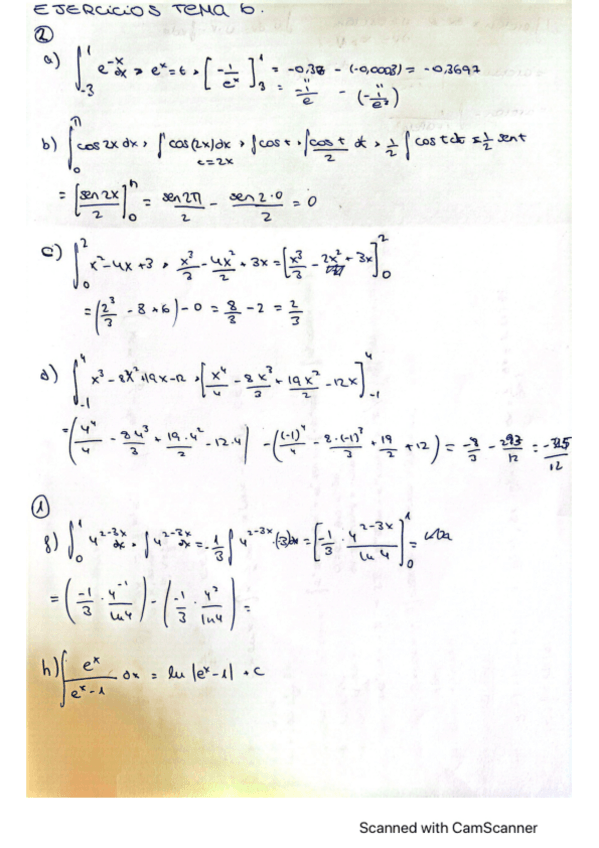 EJERCICIOS TEMA 6.
②
a) ∫₋₃¹ e⁻ˣ dx → eˣ = t → [-1/eˣ]₃¹ = -0,38 - (-0,0003) = -0,3697
= -1/e - (-1/e³)
b) ∫₀^π cos 2x dx → ∫ cos(2x) dx → ∫ cos t → ∫ cos t / 2 dt → 1/2 ∫ cos t dt = 1/2 sen t
t = 2x
= [sen 2x / 2]₀^π = sen 2π / 2 - sen 2·0 / 2 = 0
c) ∫₀² x² - 4x + 3 → x³/3 - 4x²/2 + 3x = [x³/3 - 2x² + 3x]₀²
= (2³/3 - 8 + 6) - 0 = 8/3 - 2 = 2/3
d) ∫₋₁⁴ x³ - 8x² + 19x - 12 → [x⁴/4 - 8x³/3 + 19x²/2 - 12x]₋₁⁴
= (4⁴/4 - 8·4³/3 + 19·4²/2 - 12·4) - ((-1)⁴/4 - 8·(-1)³/3 + 19/2 + 12) = -8/3 - 293/12 = -325/12
①
g) ∫₀¹ 4²⁻³ˣ dx → ∫ 4²⁻³ˣ dx = -1/3 ∫ 4²⁻³ˣ · (-3) dx = [-1/3 · 4²⁻³ˣ / ln 4]₀¹ =
= (-1/3 · 4⁻¹/ln 4) - (-1/3 · 4²/ln 4) =
h) ∫ eˣ/(eˣ - 1) dx = ln |eˣ - 1| + c
Scanned with CamScanner